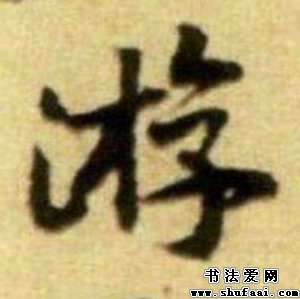 游
书法爱网
www.shufaai.com